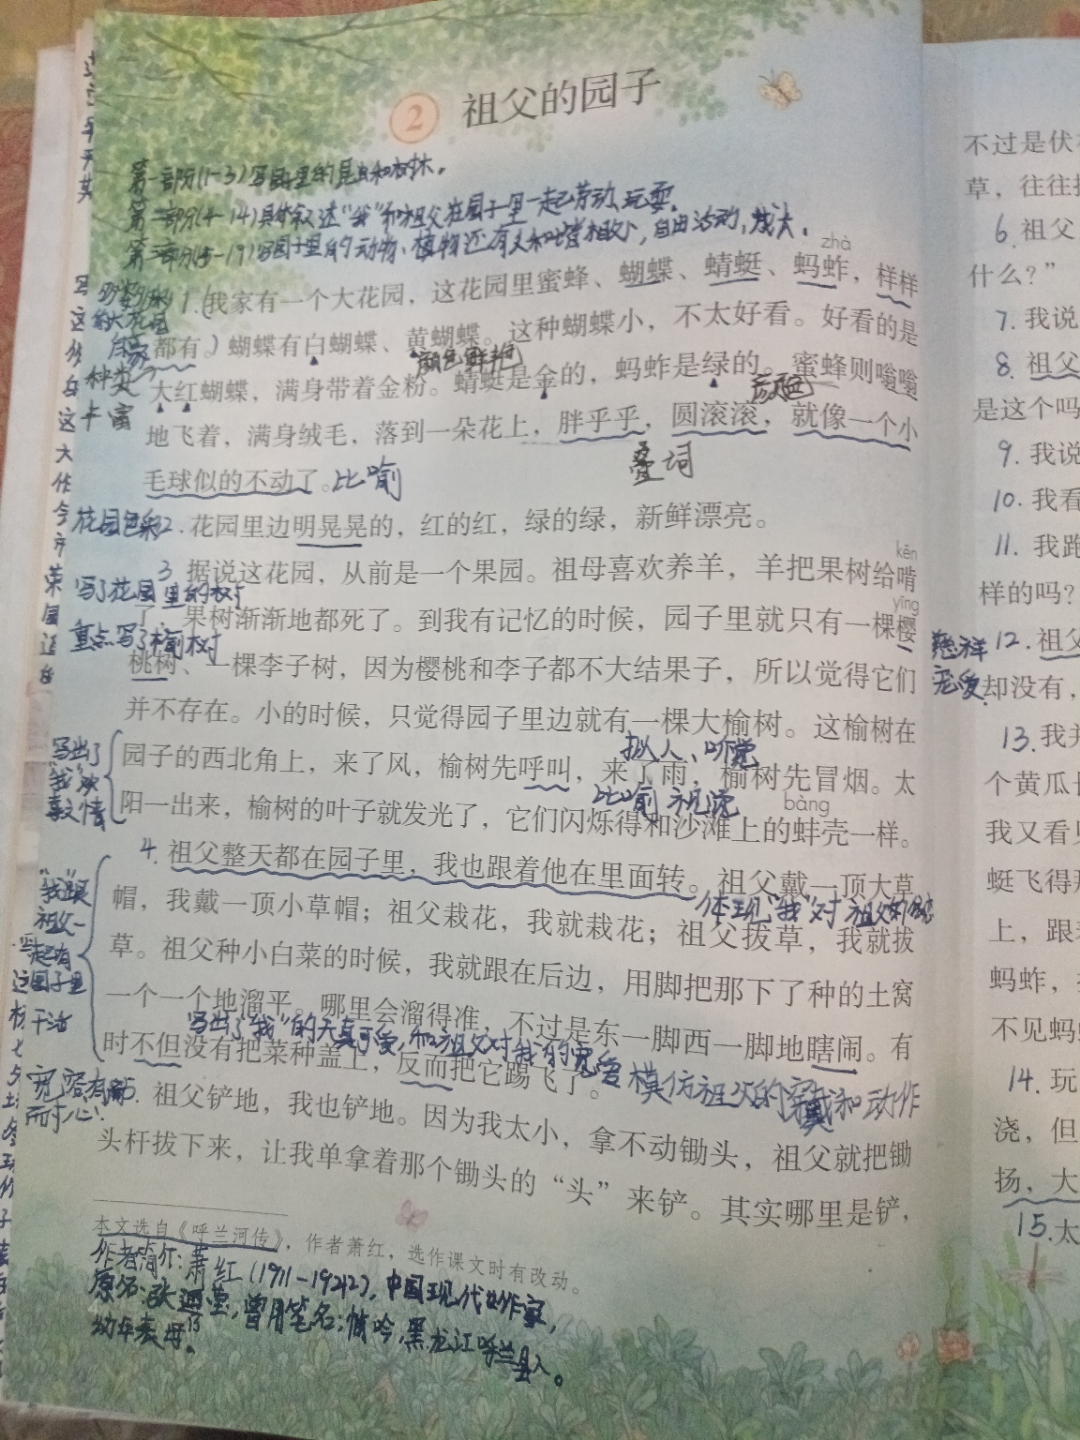 2 祖父的园子
第一部分(1-3)写园里的昆虫和树木。
第二部分(4-14)具体叙述“我”和祖父在园子里一起劳动、玩耍。
第三部分(15-19)写园子里的动物、植物还有
自由活动,成长。
zhà
1.(我家有一个大花园，这花园里蜜蜂、蝴蝶、蜻蜓、蚂蚱，样样
都有。)蝴蝶有白蝴蝶、黄蝴蝶。这种蝴蝶小，不太好看。好看的是
颜色鲜艳
大红蝴蝶，满身带着金粉。蜻蜓是金的，蚂蚱是绿的。蜜蜂则嗡嗡
地飞着，满身绒毛，落到一朵花上，胖乎乎，圆滚滚，就像一个小
毛球似的不动了。比喻
叠词
种类
丰富
花园色彩
2.花园里边明晃晃的，红的红，绿的绿，新鲜漂亮。
kěn
3 据说这花园，从前是一个果园。祖母喜欢养羊，羊把果树给啃
写了花园里的树
yīng
了。果树渐渐地都死了。到我有记忆的时候，园子里就只有一棵樱
重点写了榆树
桃树、一棵李子树，因为樱桃和李子都不大结果子，所以觉得它们
并不存在。小的时候，只觉得园子里边就有一棵大榆树。这榆树在
拟人、听觉
园子的西北角上，来了风，榆树先呼叫，来了雨，榆树先冒烟。太
比喻 视觉
bàng
阳一出来，榆树的叶子就发光了，它们闪烁得和沙滩上的蚌壳一样。
写出了
“我”欢
喜之情
4.祖父整天都在园子里，我也跟着他在里面转。祖父戴一顶大草
帽，我戴一顶小草帽；祖父栽花，我就栽花；祖父拔草，我就拔
草。祖父种小白菜的时候，我就跟在后边，用脚把那下了种的土窝
一个一个地溜平。哪里会溜得准，不过是东一脚西一脚地瞎闹。有
写出了“我”的天真可爱,和祖父对我的宠爱
时不但没有把菜种盖上，反而把它踢飞了。
模仿祖父的穿戴和动作
“我”跟
祖父一
起在
园子里
干活
宽容有
耐心
5.祖父铲地，我也铲地。因为我太小，拿不动锄头，祖父就把锄
头杆拔下来，让我单拿着那个锄头的“头”来铲。其实哪里是铲，
本文选自《呼兰河传》，作者萧红，选作课文时有改动。
作者简介:萧红(1911-1942),中国现代女作家,
原名:张迺莹,曾用笔名:悄吟,黑龙江呼兰县人。
幼年丧母。
13
不过是伏
草，往往
6.祖父
什么？”
7.我说
8.祖父
是这个吗
9.我说
10.我看
11.我跑
样的吗？
慈祥
宠爱
12.祖父
却没有，
13.我并
个黄瓜
我又看
蜓飞得那
上，跟
蚂蚱，
不见蚂
14.玩
浇，但
扬，大
15.太